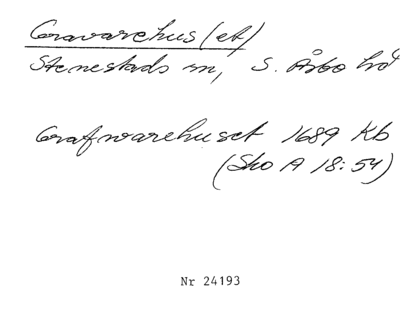 Gravarehus (et)
Stenestads sn, S. Åsbo hd
Grafwarehuset 1689 Kb
(Sko A 18:54)
Nr 24193